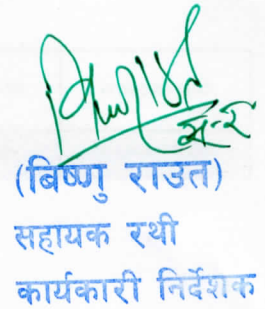 (बिष्णु राउत)
सहायक रथी
कार्यकारी निर्देशक